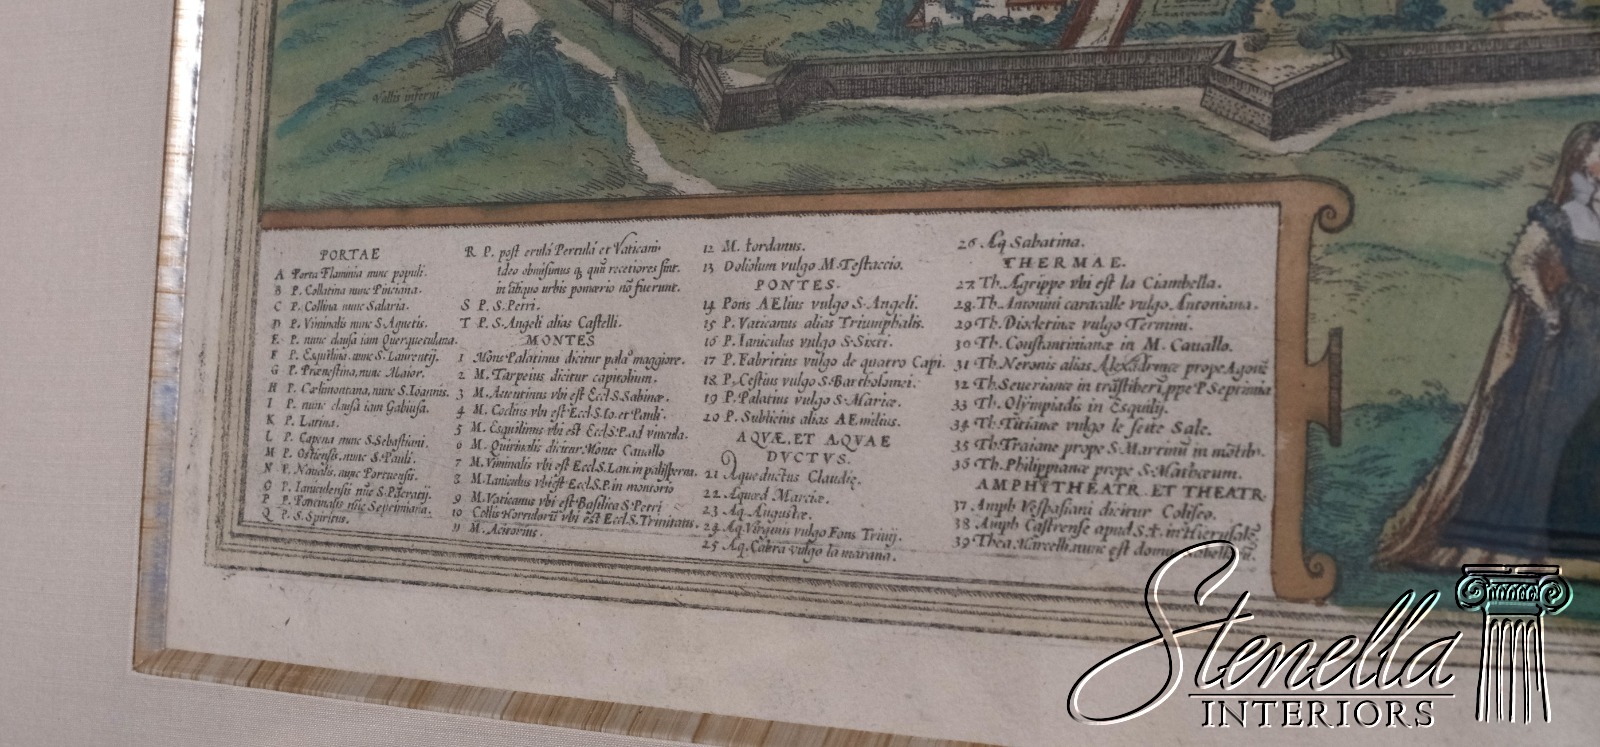 Vallis inferni
PORTAE
A Porta Flaminia nunc populi.
B P. Collatina nunc Pinciana.
C P. Collina nunc Salaria.
D P. Viminalis nunc S. Agnetis.
E P. nunc clausa iam Querquetulana.
F P. Esquilina nunc S. Laurentij.
G P. Prænestina, nunc Maior.
H P. Cœlimontana, nunc S. Ioannis.
I P. nunc clausa iam Gabiusa.
K P. Latina.
L P. Capena nunc S. Sebastiani.
M P. Ostiensis, nunc S. Pauli.
N P. Naualis, nunc Portuensis.
O P. Ianiculensis nũc S. Pãcratij.
P P. Fontinalis nũc Septimiana.
Q P. S. Spiritus.
R P. post erulã Pertulã et Vaticani
ideo obmisimus q, quũ recetiores sint.
in ãtiquo urbis pomœrio nõ fuerunt.
S P. S. Petri.
T P. S. Angeli alias Castelli.
MONTES
1 Mons Palatinus dicitur pala maggiore.
2 M. Tarpeius dicitur capitolium.
3 M. Auentinus vbi est Eccl. S. Sabinæ.
4 M. Coelius vbi est Eccl. S. Io. et Pauli.
5 M. Esquilinus vbi est Eccl. S. P. ad vincula.
6 M. Quirinalis dicitur Monte Cauallo
7 M. Viminalis vbi est Eccl. S. Lau. in palisperna.
8 M. Ianiculus vbi est Eccl. S. P. in montorio
9 M. Vaticanus vbi est Basilica S. Petri
10 Collis Hortulorũ vbi est Eccl. S. Trinitatis.
11 M. Acitorius.
12 M. Iordanus.
13 Doliolum vulgo M. Testaccio.
PONTES.
14 Pons AElius vulgo S. Angeli.
15 P. Vaticanus alias Triumphalis.
16 P. Ianiculus vulgo S. Sixti.
17 P. Fabritius vulgo de quatro Capi.
18 P. Cestius vulgo S. Bartholomei.
19 P. Palatius vulgo S. Mariæ.
20 P. Sublicius alias AEmilius.
AQVÆ, ET AQVAE
DVCTVS.
21 Aqueductus Claudię.
22 Aquæd Marciæ.
23 Aq. Augustæ.
24 Aq. Virginis vulgo Fons Triuij.
25 Aq. Cabra vulgo la marana.
26 Aq Sabatina.
THERMAE.
27 Th. Agrippe vbi est la Ciambella.
28 Th. Antonini caracalle vulgo Antoniana.
29 Th. Diocletinæ vulgo Termini.
30 Th. Constantinianæ in M. Cauallo.
31 Th. Neronis alias Alexãdrinæ prope Agonẽ
32 Th. Seuerianæ in trãstiberi, ppe P. Septimiã
33 Th. Olympiadis in Esquilij.
34 Th. Titianæ vulgo le sette Sale.
35 Th. Traiane prope S. Martinũ in mõtib.
36 Th. Philippianæ prope S. Mathœum.
AMPHITHEATR. ET THEATR.
37 Amph Vespasiani dicitur Coliseo.
38 Amph Castrense apud S. ✝. in Hierusalẽ.
39 Thea. Marcelli, nunc est domus
Stenella
INTERIORS